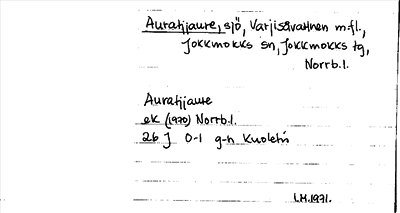 Auratjaure, sjö, Varjisåvattnen m.fl.,
Jokkmokks sn, Jokkmokks tg,
Norrb.l.
Auratjaure
ek (1970) Norrb.l.
26 J 0-1 g-h Kuoletis
I.M. 1971.